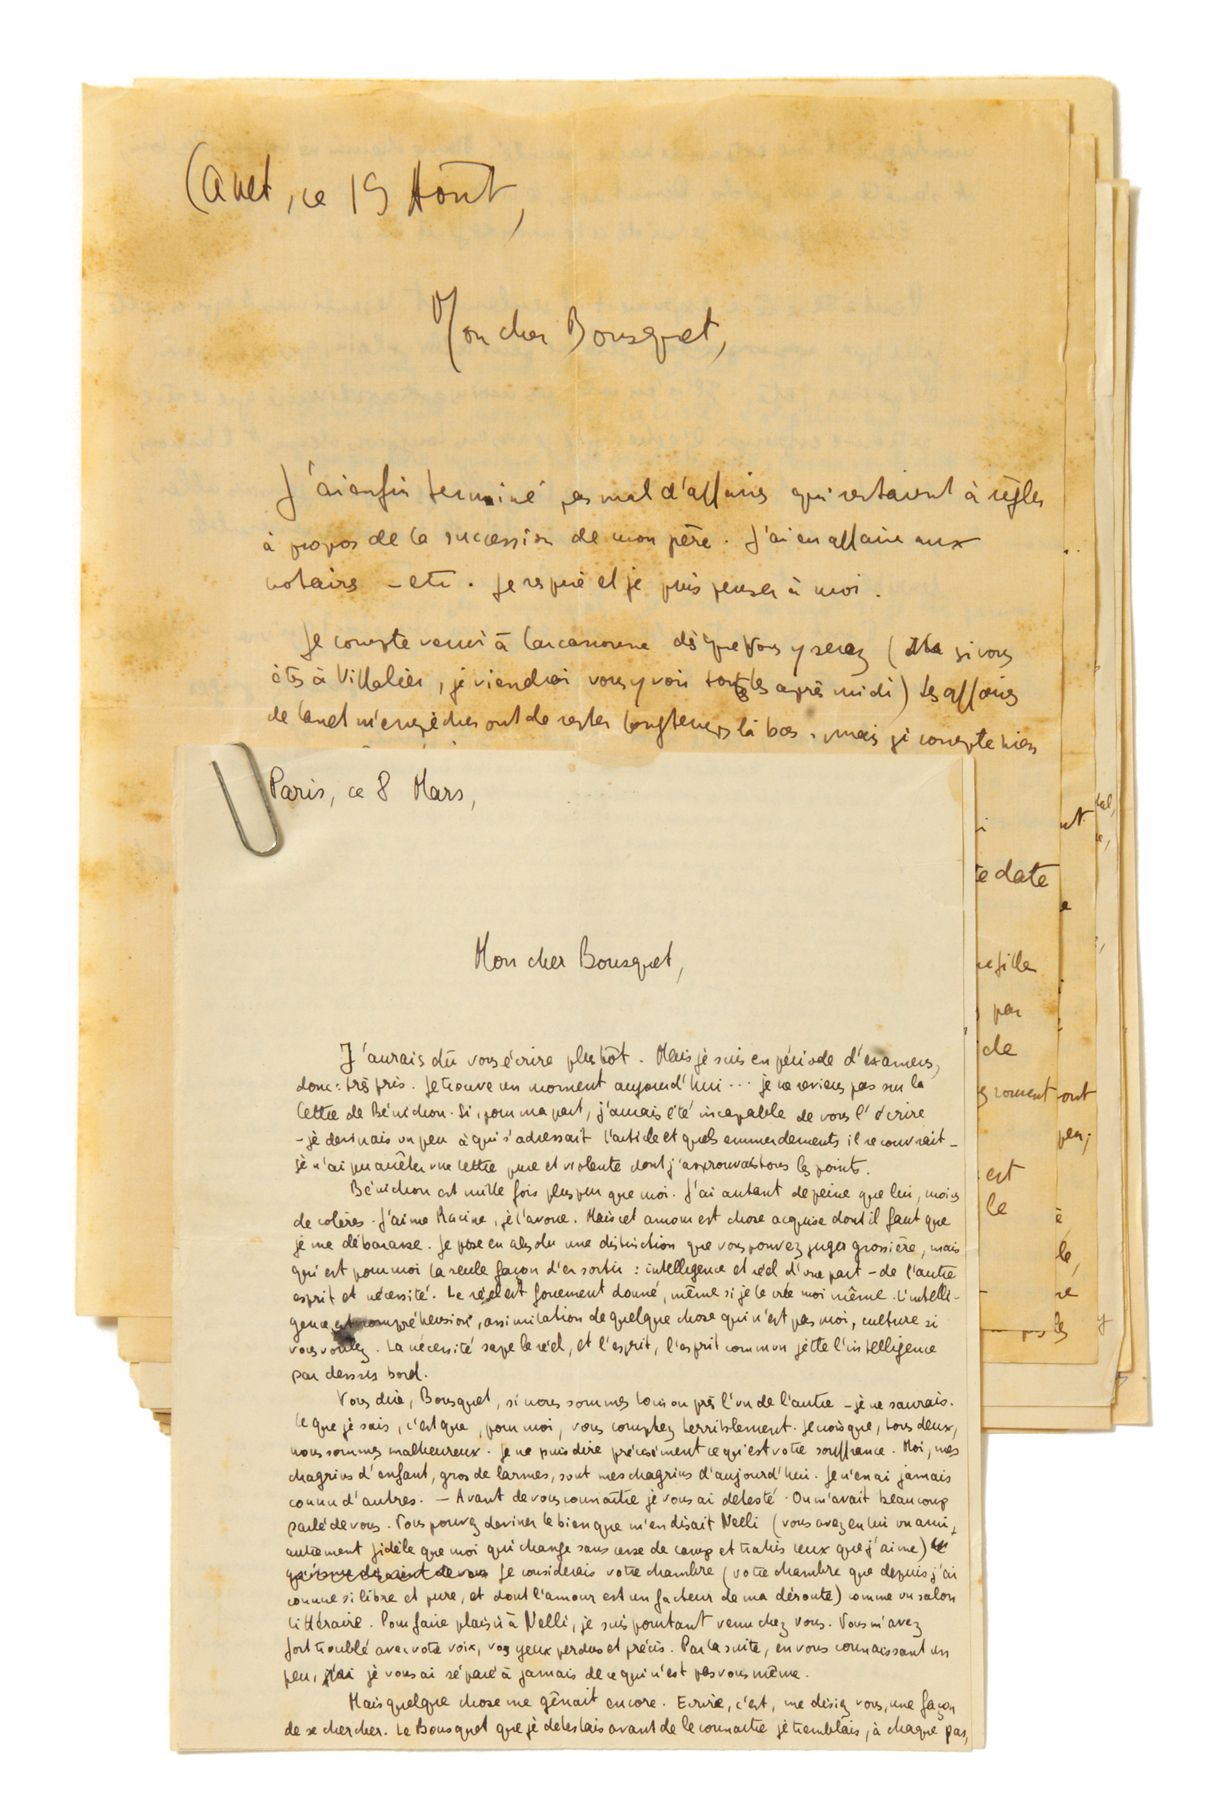 Canet, ce 19 Août,
Mon cher Bousquet,
J'ai enfin terminé pas mal d'affaires qui restaient à régler
à propos de la succession de mon père. J'ai eu affaire aux
notaires - etc. Je respire et je puis penser à moi.
Je compte venir à Carcassonne dès que vous y serez ( si vous
êtes à Villalier, je viendrai vous y voir tous les après midi) Les affaires
de Canet m'empêcheront de rester longtemps là bas, mais je compte bien
Paris, ce 8 Mars,
Mon cher Bousquet,
J'aurais dû vous écrire plutôt. Mais je suis en période d'examens,
donc : très pris. Je trouve un moment aujourd'hui... je ne reviens pas sur la
lettre de Bénichou. Si, pour ma part, j'aurais été incapable de vous l'écrire
- je devinais un peu à qui s'adressait l'article et quels emmerdements il recouvrait -
je n'ai pu arrêter une lettre pure et violente dont j'approuvais tous les points.
Bénichou est mille fois plus pur que moi. J'ai autant de peine que lui, moins
de colères. J'aime Racine, je l'avoue. Mais cet amour est chose acquise dont il faut que
je me débarasse. Je pose en absolu une distinction que vous pouvez juger grossière, mais
qui est pour moi la seule façon d'en sortir : intelligence et réel d'une part - de l'autre
esprit et nécessité. Le réel est forcément donné, même si je le crée moi même. L'intelli-
gence est compréhension, assimilation de quelque chose qui n'est pas moi, culture si
vous voulez. La nécessité sape le réel, et l'esprit, l'esprit commun jette l'intelligence
par dessus bord.
Vous dire, Bousquet, si nous sommes loin ou près l'un de l'autre - je ne saurais.
Ce que je sais, c'est que, pour moi, vous comptez terriblement. Je crois que, tous deux,
nous sommes malheureux. Je ne puis dire précisément ce qu'est votre souffrance. Moi, mes
chagrins d'enfant, gros de larmes, sont mes chagrins d'aujourd'hui. Je n'en ai jamais
connu d'autres. - Avant de vous connaître je vous ai détesté. On m'avait beaucoup
parlé de vous. Vous pouvez deviner le bien que m'en disait Nelli (vous avez en lui un ami,
autrement fidèle que moi qui change sans cesse de camp et trahis ceux que j'aime)
Je considérais votre chambre (votre chambre que depuis j'ai
connue si libre et pure, et dont l'amour est un facteur de ma déroute) comme un salon
littéraire. Pour faire plaisir à Nelli, je suis pourtant venu chez vous. Vous m'avez
fort troublé avec votre voix, vos yeux perdus et précis. Par la suite, en vous connaissant un
peu, j'ai je vous ai séparé à jamais de ce qui n'est pas vous même.
Mais quelque chose me gênait encore. Ecrire, c'est, me disiez vous, une façon
de se chercher. Le Bousquet que je détestais avant de le connaître je tremblais, à chaque pas,
te date
par
de
ont
est
le